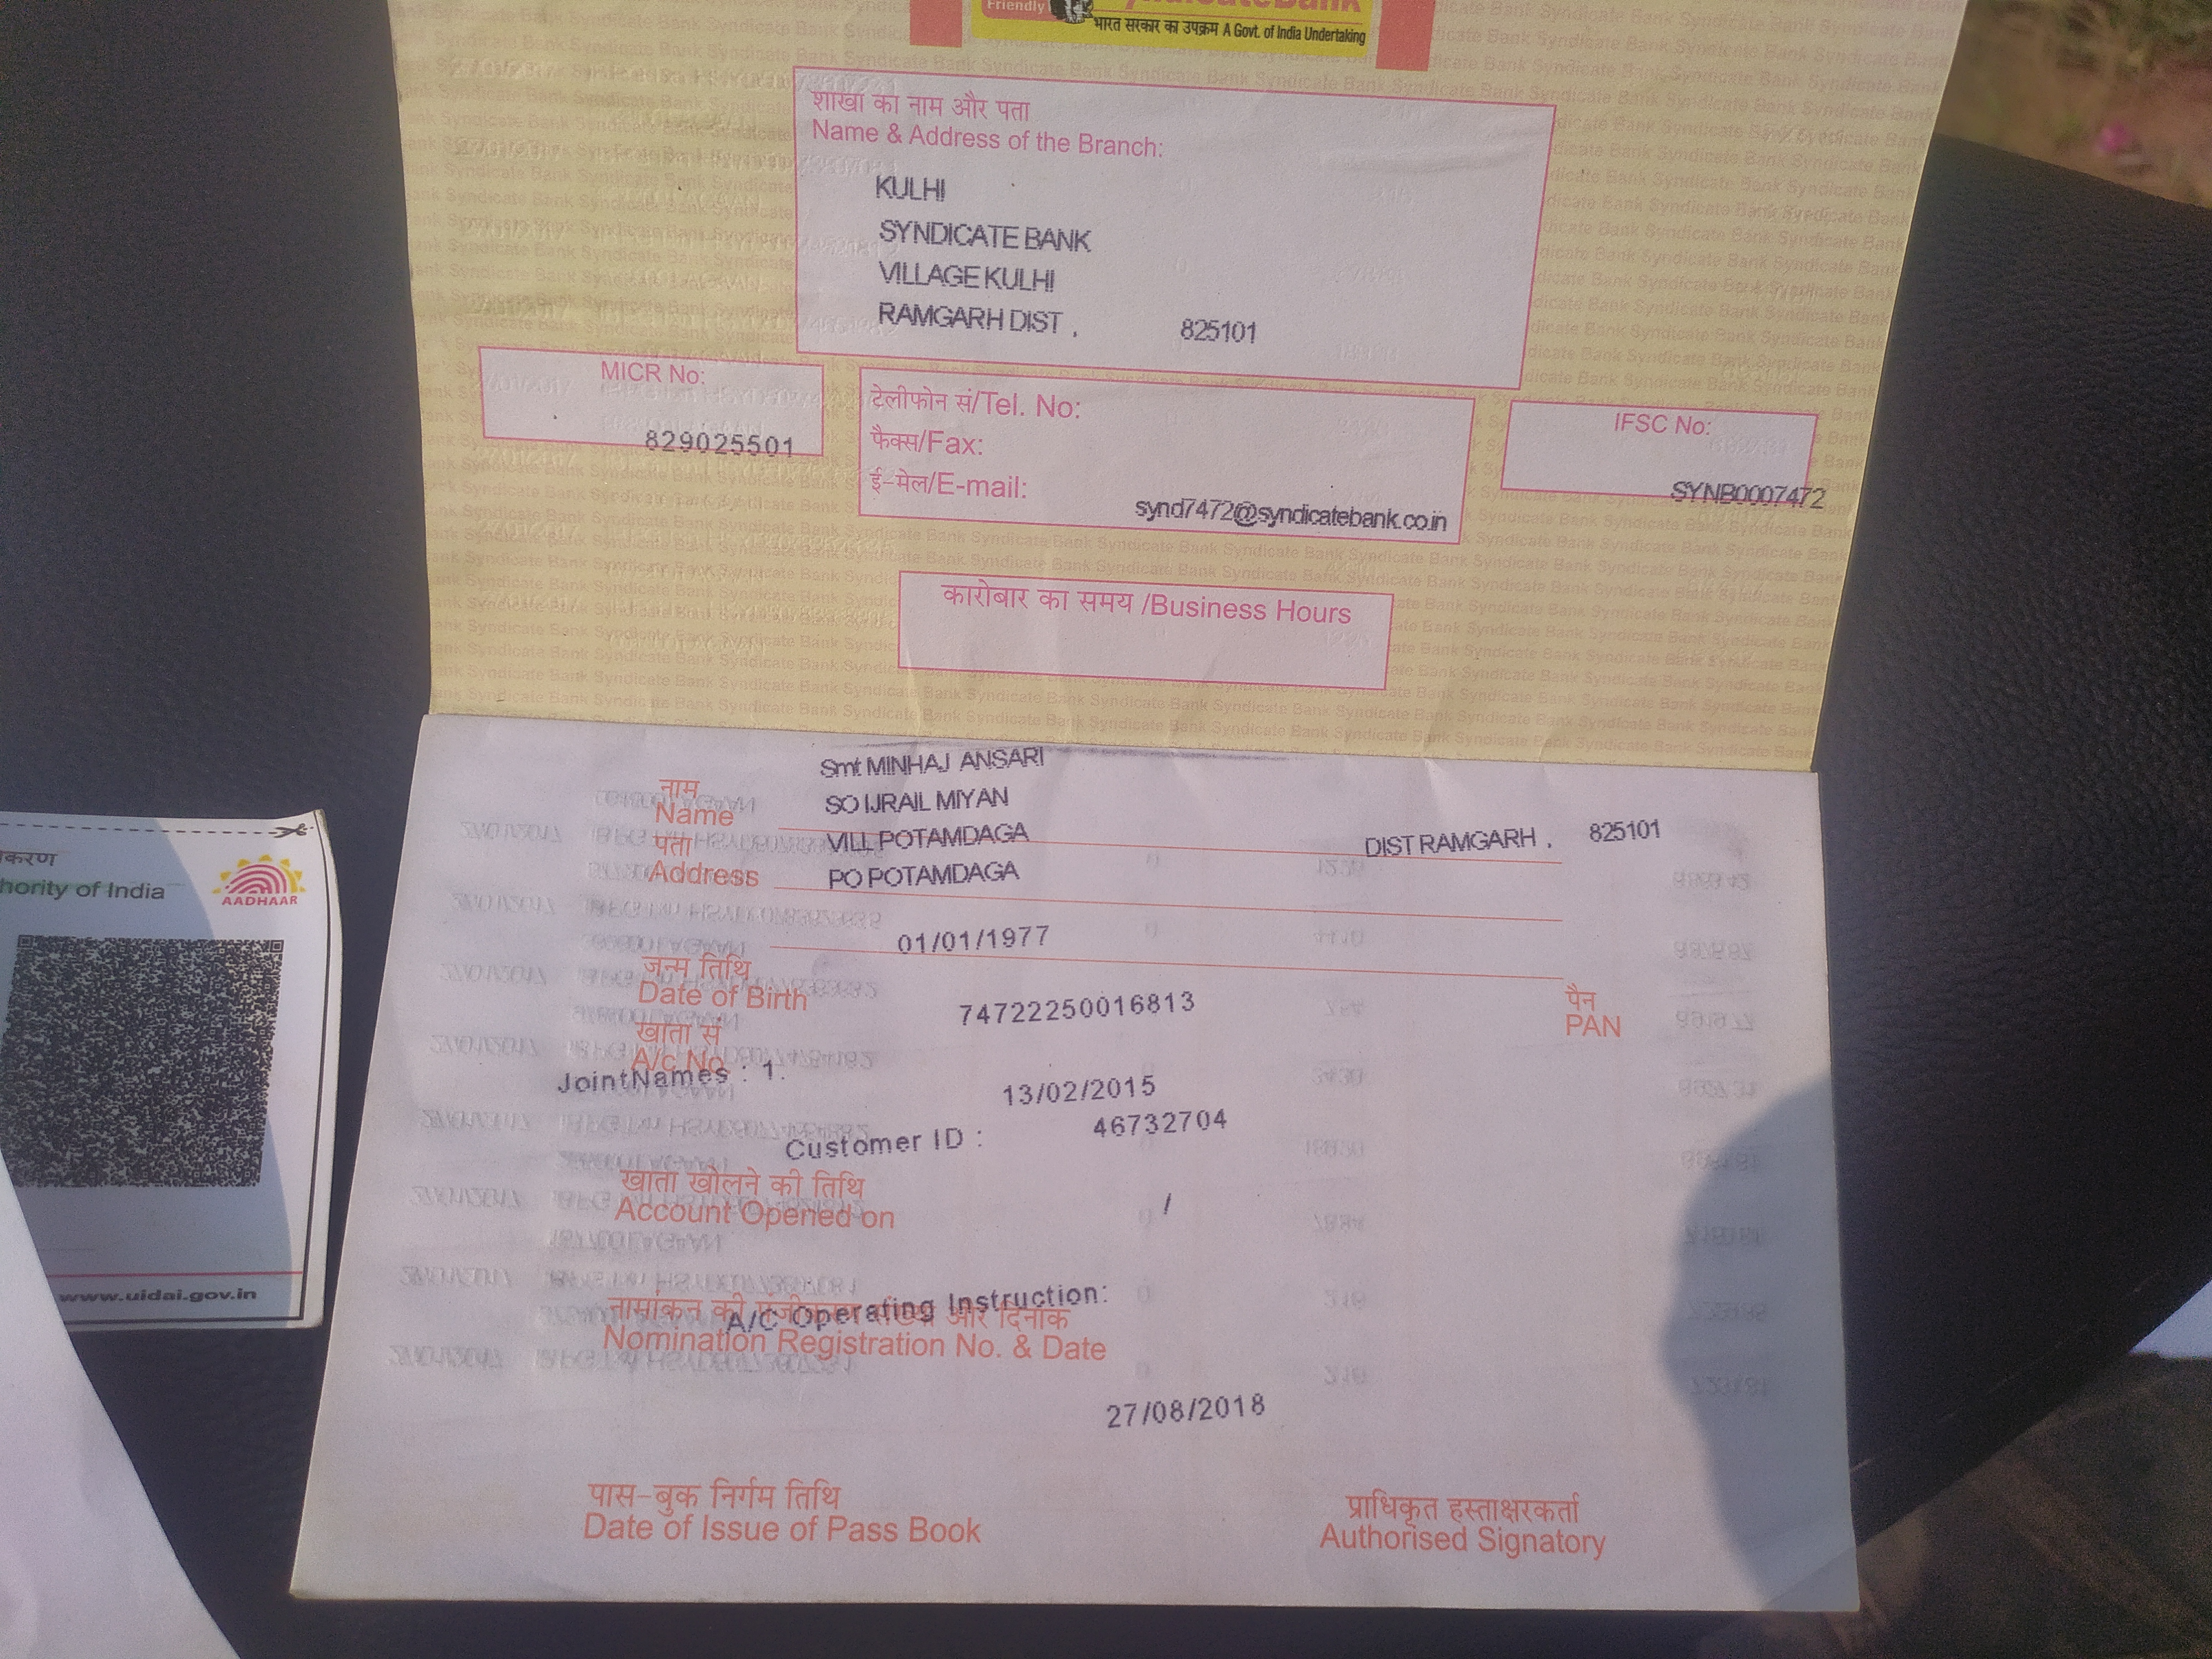 Friendly
SyndicateBank
भारत सरकार का उपक्रम A Govt. of India Undertaking
शाखा का नाम और पता
Name & Address of the Branch:
KULHI
SYNDICATE BANK
VILLAGE KULHI
RAMGARH DIST . 825101
MICR No:
829025501
टेलीफोन सं/Tel. No:
फैक्स/Fax:
ई-मेल/E-mail:
synd7472@syndicatebank.co.in
IFSC No:
SYNB0007472
कारोबार का समय /Business Hours
Smt MINHAJ ANSARI
नाम
Name
SO IJRAIL MIYAN
पता
Address
VILL POTAMDAGA DIST RAMGARH . 825101
PO POTAMDAGA
01/01/1977
जन्म तिथि
Date of Birth
74722250016813
पैन
PAN
खाता सं
A/c No
JointNames : 1.
13/02/2015
Customer ID : 46732704
खाता खोलने की तिथि
Account Opened on
/
A/C Operating Instruction:
नामांकन की और दिनांक
Nomination Registration No. & Date
27/08/2018
पास-बुक निर्गम तिथि
Date of Issue of Pass Book
प्राधिकृत हस्ताक्षरकर्ता
Authorised Signatory
करण
hority of India
AADHAAR
www.uidai.gov.in